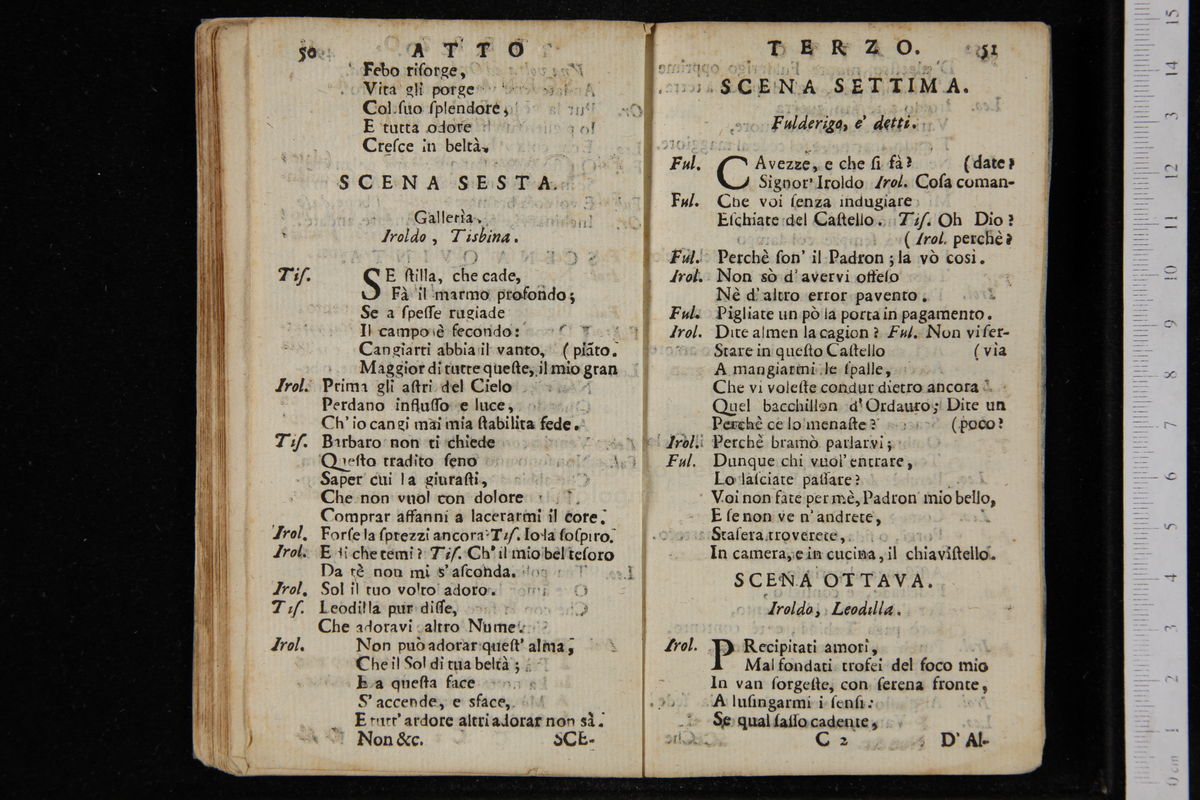 50 ATTO
Febo riſorge,
Vita gli porge
Col ſuo ſplendore,
E tutta odore
Creſce in beltà.
SCENA SESTA.
Gallerìa.
Iroldo, Tisbina.
Tiſ. SE ſtilla, che cade,
Fà il marmo profondo;
Se a ſpeſſe rugiade
Il campo è fecondo:
Cangiarti abbia il vanto, (piãto.
Maggior di tutte queſte, il mio gran
Irol. Prima gli aſtri del Cielo
Perdano influſſo e luce,
Ch' io cangi mai mia ſtabilita fede.
Tiſ. Barbaro non ti chiede
Queſto tradito ſeno
Saper cui la giuraſti,
Che non vuol con dolore
Comprar affanni a lacerarmi il core.
Irol. Forſe la ſprezzi ancora? Tiſ. Io la ſoſpiro.
Irol. E di che temi? Tiſ. Ch' il mio bel teſoro
Da tè non mi s' aſconda.
Irol. Sol il tuo volto adoro.
Tiſ. Leodilla pur diſſe,
Che adoravi altro Nume.
Irol. Non può adorar queſt' alma,
Che il Sol di tua beltà;
E a queſta face
S' accende, e sface,
E tutt' ardore altri adorar non sà.
Non &c. SCE-
TERZO. 51
SCENA SETTIMA.
Fulderigo, e' detti.
Ful. CAvezze, e che ſi fà? (date?
Signor' Iroldo Irol. Coſa coman-
Ful. Che voi ſenza indugiare
Eſchiate del Caſtello. Tiſ. Oh Dio?
(Irol. perchè?
Ful. Perchè ſon' il Padron; la vò così.
Irol. Non sò d' avervi offeſo
Nè d' altro error pavento.
Ful. Pigliate un pò la porta in pagamento.
Irol. Dite almen la cagion? Ful. Non vi ſer-
Stare in queſto Caſtello (via
A mangiarmi le ſpalle,
Che vi voleſte condur dietro ancora
Quel bacchillon d' Ordauro; Dite un
Perchè ce lo menaſte? (poco?
Irol. Perchè bramò parlarvi;
Ful. Dunque chi vuol' entrare,
Lo laſciate paſſare?
Voi non fate per mè, Padron mio bello,
E ſe non ve n' andrete,
Staſera troverete,
In camera, e in cucina, il chiaviſtello.
SCENA OTTAVA.
Iroldo, Leodilla.
Irol. PRecipitati amori,
Mal fondati trofei del foco mio
In van ſorgeſte, con ſerena fronte,
A luſingarmi i ſenſi:
Se qual ſaſſo cadente,
C 2 D' Al-